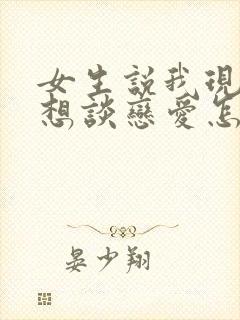 女生説我現
想談戀愛怎
晏少翔